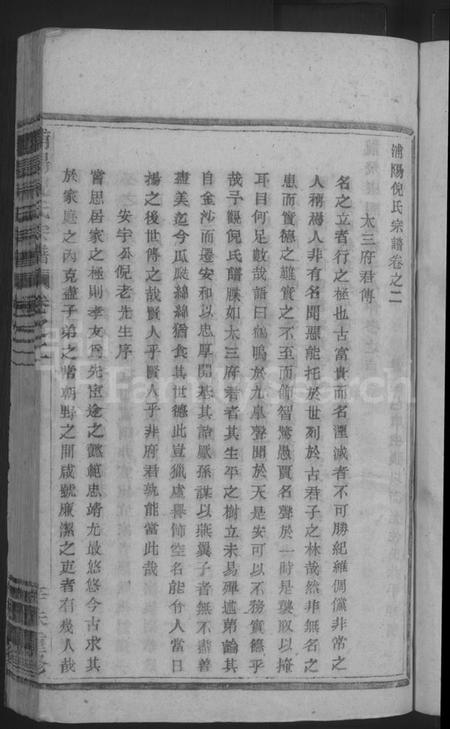 浦陽倪氏宗譜卷之二
太三府君傳
名之立者行之極也古富貴而名湮滅者不可勝紀維倜儻非常之
人稱焉人非有名聞惡能托於世列於古君子之林哉然非無名之
患而實德之難實之不至而飾智驚愚買名聲於一時是襲取以掩
耳目何足數哉語曰鶴鳴於九臯聲聞於天是安可以不務實德乎
哉予觀倪氏譜牒如太三府君者其生平之樹立未易殫述第論其
自金沙而遷安和以忠厚開基其詒厥孫謀以燕翼子者無不盡善
盡美迄今瓜瓞綿綿猶食其世德此豈獵虛譽飾空名能令人當日
揚之後世傳之哉賢人乎賢人乎非府君孰能當此哉
安宇公倪老先生序
嘗思居家之極則孝友爲先宦途之懿範忠靖尤最悠悠今古求其
於家庭之內克盡子弟之常朝野之間咸號廉潔之吏者有幾人哉
FamilySearch